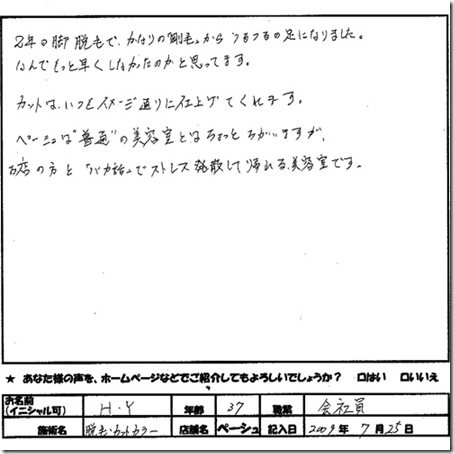 2年の脚脱毛で、かなりの「剛毛」からつるつるの足になりました。
なんでもっと早くしなかったのかと思ってます。
カットは、いつもイメージ通りに仕上げてくれます。
ペーシュは"普通"の美容室とはちょっとちがいますが、
お店の方と「バカ話」でストレス発散して帰れる、美容室です。
★ あなた様の声を、ホームページなどでご紹介してもよろしいでしょうか? □はい □いいえ
お名前(イニシャル可) H・Y 年齢 37 職業 会社員
施術名 脱毛・カットカラー 店舗名 ペーシュ 記入日 2009年 7月25日